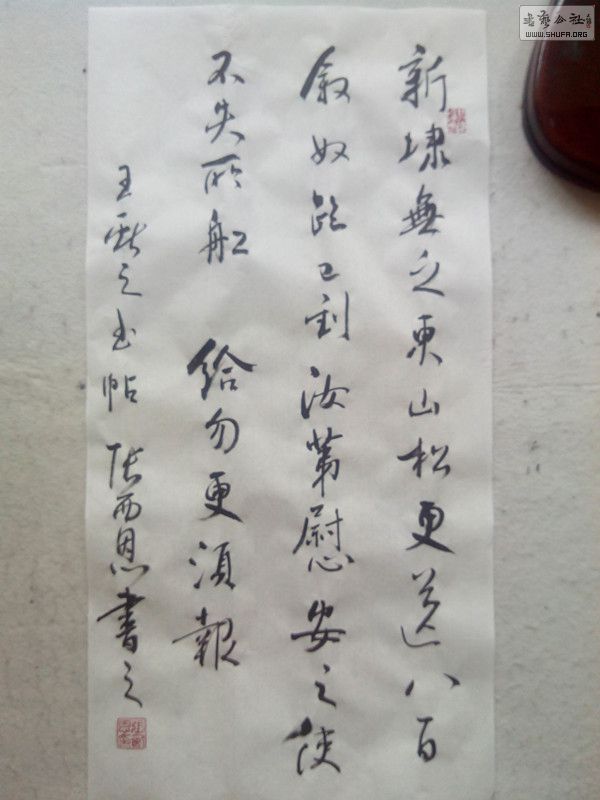 新埭無乏東山松更送八百
叙奴已到汝第慰安之使
不失所船 給勿更須報
王献之书帖 张西恩書之
書藝公社
WWW.SHUFA.ORG